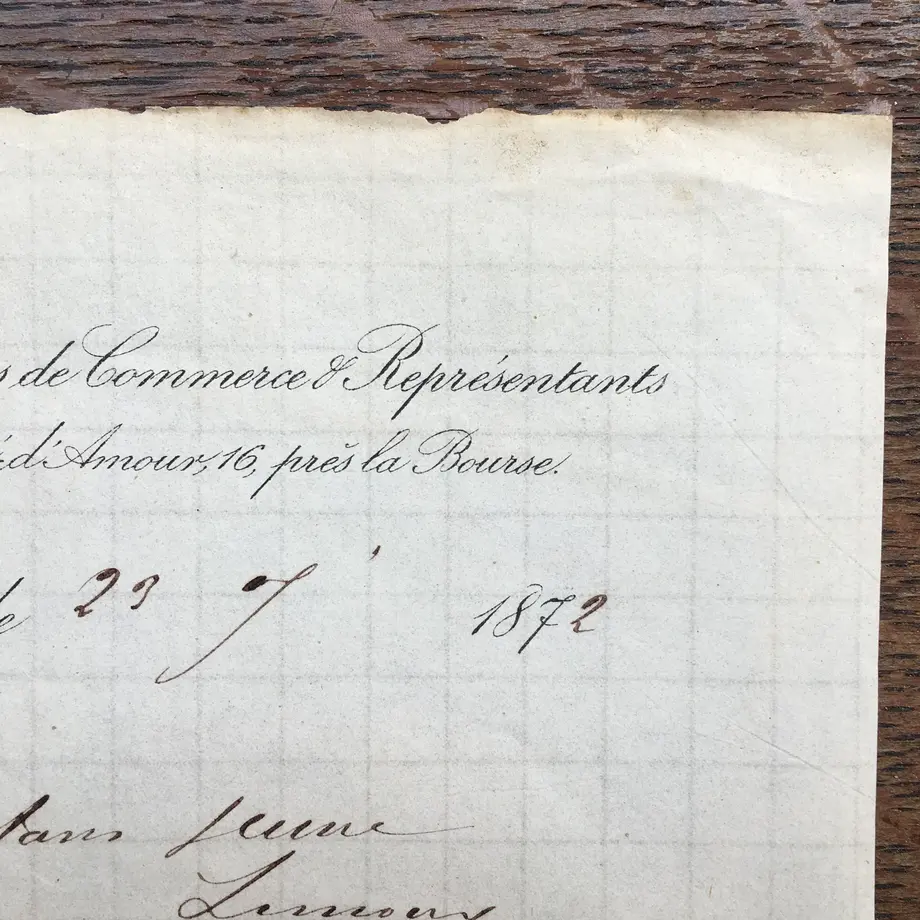 de Commerce & Représentants
d'Amour, 16, près la Bourse.
le 23 7 1872
Jeune
Limoux